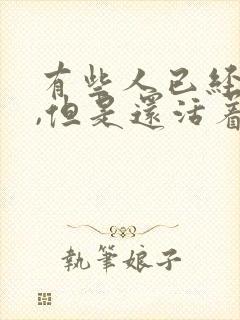 有些人已經
,但是還活着
執筆娘子